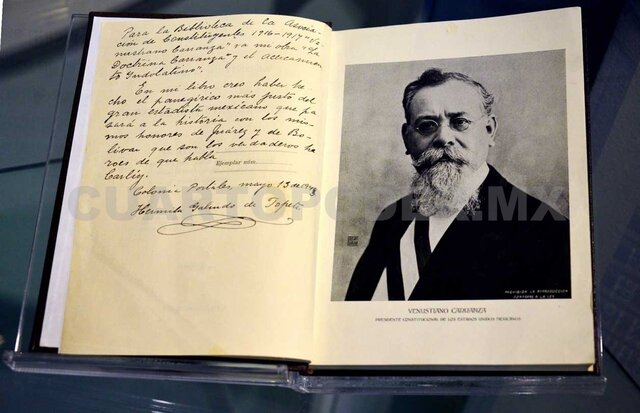 Para la Biblioteca de la Asocia-
ción de Constituyentes 1916-1917 "Ve-
nustiano Carranza" va mi obra "La
Doctrina Carranza" y el Acercamien-
to Indolatino".
En mi libro creo haber he-
cho el panegírico mas justo del
gran estadista mexicano que pa-
sará a la historia con los mis-
mos honores de Juárez y de Bo-
lívar que son los verdaderos hé-
roes de que habla
Ejemplar núm.
Colonia Portales, mayo 13 de
Hermila Galindo de Topete
PROHIBIDA LA REPRODUCCION
CONFORME A LA LEY
VENUSTIANO CARRANZA
PRESIDENTE CONSTITUCIONAL DE LOS ESTADOS UNIDOS MEXICANOS
CUARTOPODER.MX